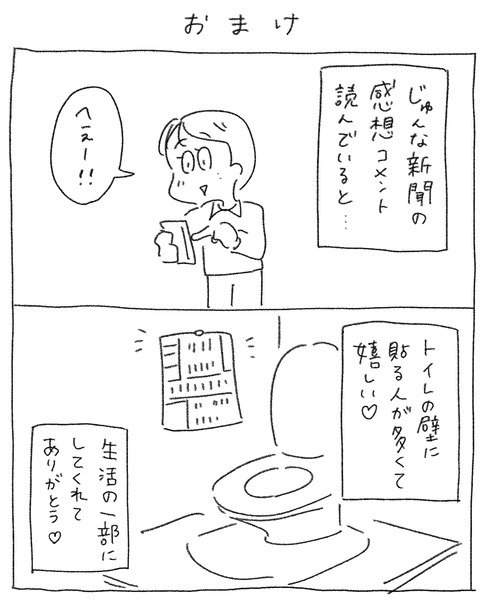 おまけ
じゅんな新聞の
感想コメント
読んでいると…
へぇー!!
トイレの壁に
貼る人が多くて
嬉しい♡
生活の一部に
してくれて
ありがとう♡